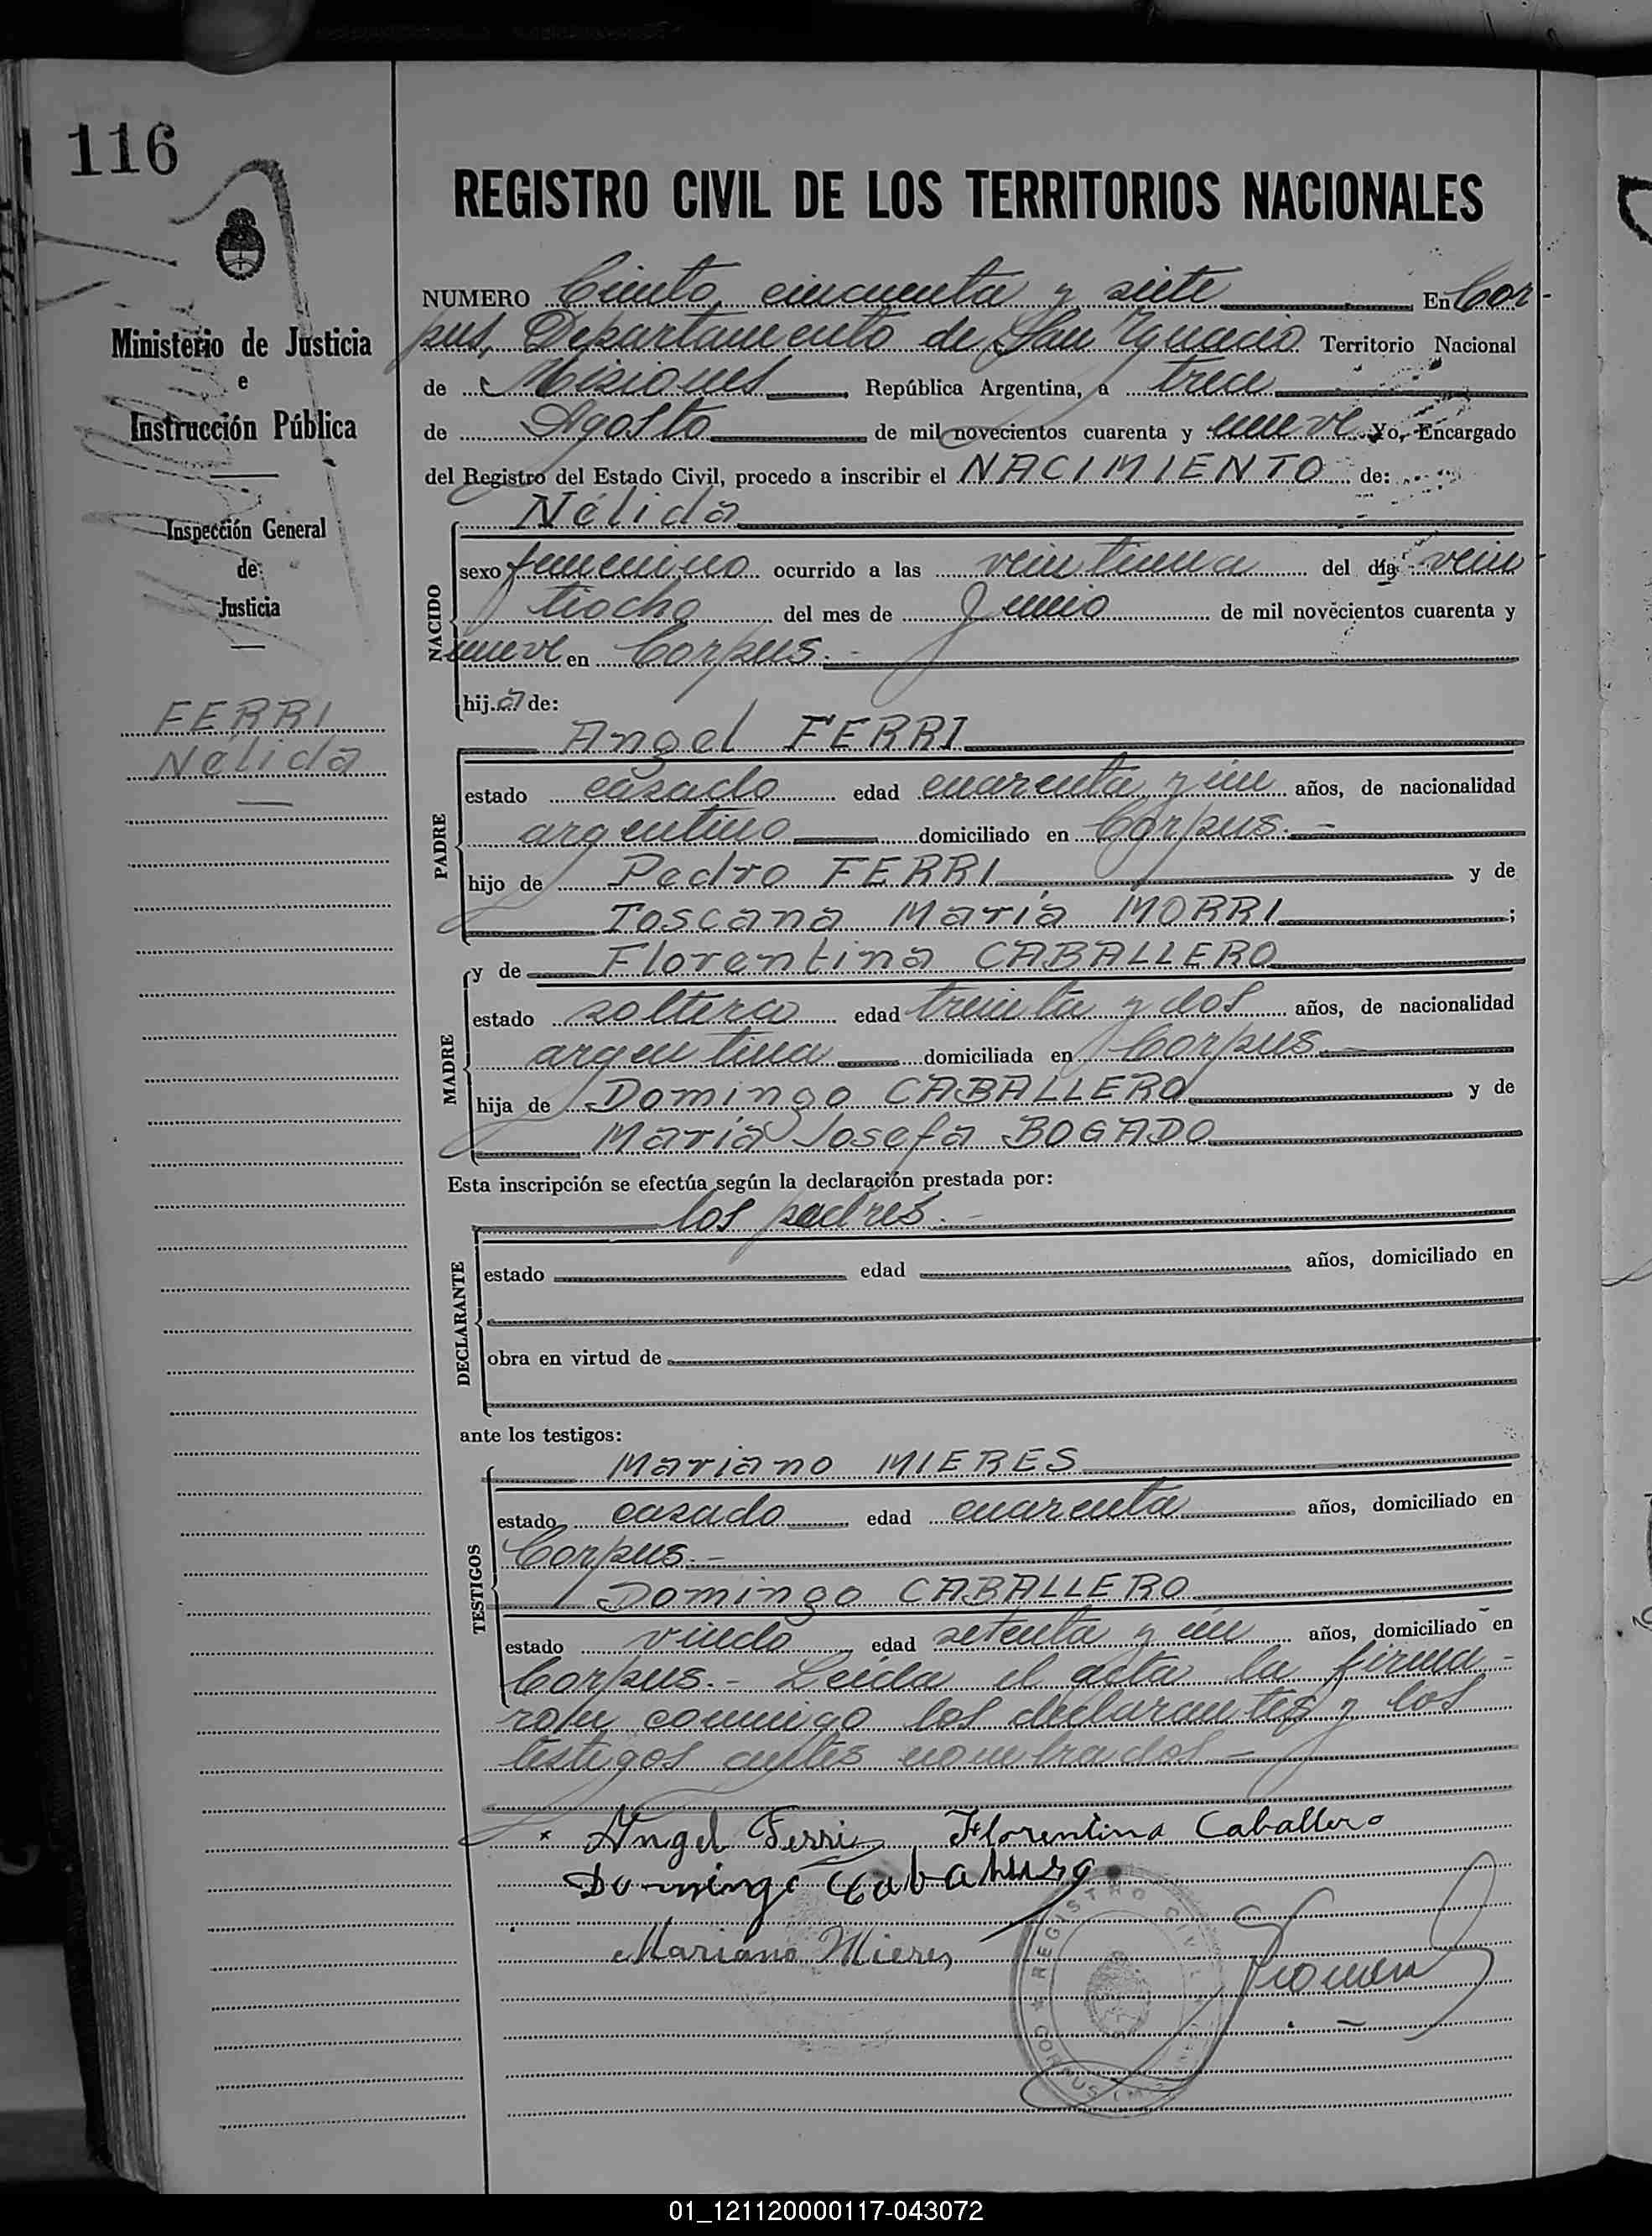 116
Ministerio de Justicia
e
Instrucción Pública
Inspección General
de
Justicia
FERRI
Nélida
REGISTRO CIVIL DE LOS TERRITORIOS NACIONALES
NUMERO Ciento cincuenta y siete En Cor-
pus, Departamento de San Ygnacio Territorio Nacional
de Misiones República Argentina, a trece
de Agosto de mil novecientos cuarenta y nueve Yo, Encargado
del Registro del Estado Civil, procedo a inscribir el NACIMIENTO de:
Nélida
NACIDO
sexo femenino ocurrido a las veintiuna del día vein-
tiocho del mes de Junio de mil novecientos cuarenta y
nueve en Corpus.-
hija de:
Angel FERRI
PADRE
estado casado edad cuarenta y ún años, de nacionalidad
argentino domiciliado en Corpus.-
hijo de Pedro FERRI y de
Toscana María MORRI ;
y de Florentina CABALLERO
MADRE
estado soltera edad treinta y dos años, de nacionalidad
argentina domiciliada en Corpus.-
hija de Domingo CABALLERO y de
María Josefa BOGADO
Esta inscripción se efectúa según la declaración prestada por:
los padres.-
DECLARANTE
estado edad años, domiciliado en
obra en virtud de
ante los testigos:
Mariano MIERES
TESTIGOS
estado casado edad cuarenta años, domiciliado en
Corpus.-
Domingo CABALLERO
estado viudo edad setenta y ún años, domiciliado en
Corpus.- Leída el acta la firma-
ron conmigo los declarantes y los
testigos antes nombrados.-
Angel Ferri Florentina Caballero
Domingo
Mariano Mieres
REGISTRO CIVIL
CORPUS
01_121120000117-043072